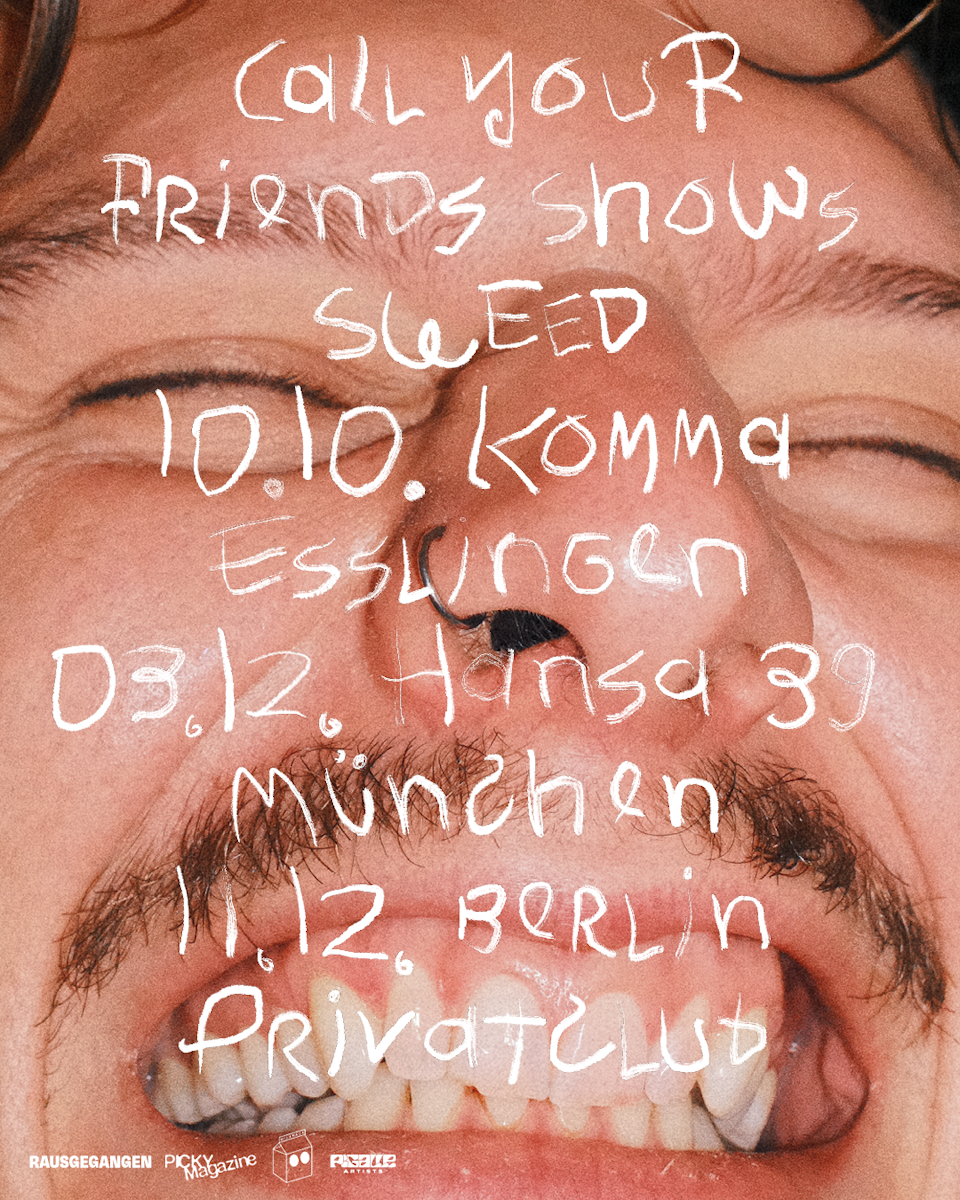 Call your
Friends shows
Sleeed
10.10. Komma
Esslingen
03.12. Hansa 39
München
11.12. Berlin
Privatclub
RAUSGEGANGEN
PICKY
Magazine
ARTISTS